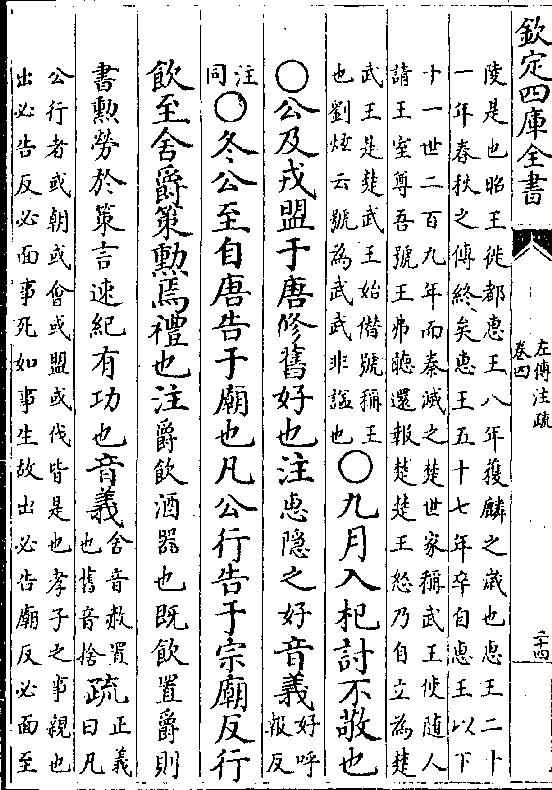 欽定四庫全書
左傳注疏
卷四
二十四
陵是也昭王徙都惠王八年獲麟之歲也惠王二十
一年春秋之傳終矣惠王五十七年卒自惠王以下
十一世二百九年而秦滅之楚世家稱武王使隨人
請王室尊吾號王弗聽還報楚楚王怒乃自立為楚
武王是楚武王始僭號稱王
也劉炫云號為武武非諡也
○九月入杞討不敬也
○公及戎盟于唐修舊好也注惠隐之好音義好呼報反
注同○冬公至自唐告于廟也凡公行告于宗廟反行
飲至舍爵策勳焉禮也注爵飲酒器也既飲置爵則
書勲勞於策言速紀有功也音義舍音赦置也舊音捨疏正義曰凡
公行者或朝或會或盟或伐皆是也孝子之事親也
出必告反必面事死如事生故出必告廟反必面至